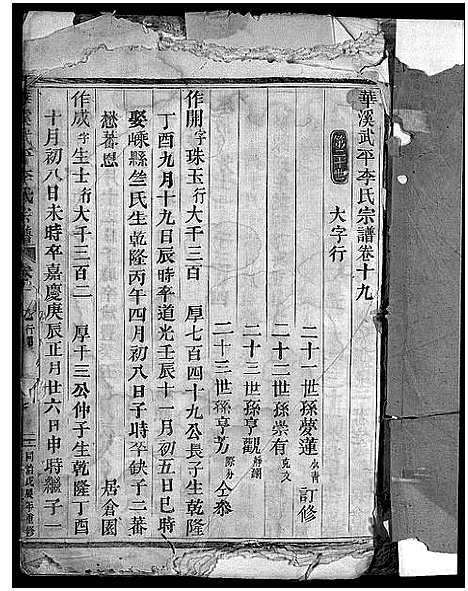 華溪武平李氏宗譜卷十九
第二十世
大字行
二十一世孫夢蓮 訂修
二十二世孫崇有克文
二十三世孫亨觀
二十三世孫亨芳 仝叅
作開字珠玉行大千三百 厚七百四十九公長子生乾隆
丁酉九月十九日辰時卒道光壬辰十一月初五日巳時
娶嵊縣竺氏生乾隆丙午四月初八日子時卒缺子二蕃
懋蕃恩 居倉園
作成字生士行大千三百二 厚千三公仲子生乾隆丁酉
十月初八日未時卒嘉慶庚辰正月廿六日申時繼子一
李氏宗譜 卷 行
同治戊辰年重修